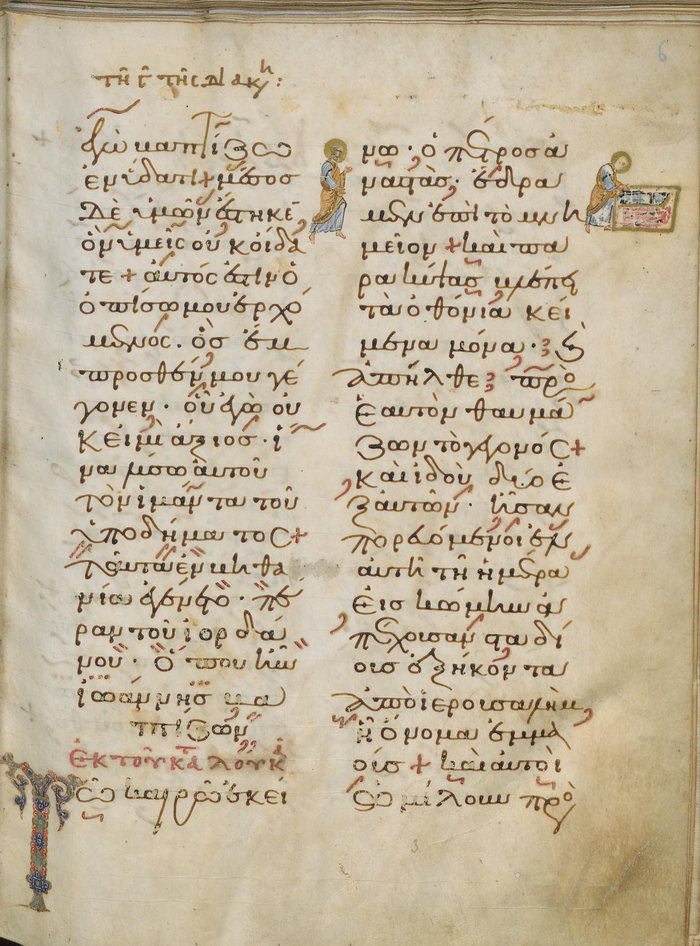 τῆ γ τῆς διακ
ἐγὼ βαπτίζω
ἐν ὕδατι + μέσος
δὲ ὑμῶν ἕστηκε,
ὃν ὑμεῖς οὐκ οἴδα
τε + αὐτός ἐστιν ὁ
ὀπίσω μου ἐρχό
μενος. ὃς ἔμ
προσθέν μου γέ
γονεν. οὗ ἐγὼ οὐ
κ εἰμὶ ἄξιος. ἵ
να λύσω αὐτοῦ
τὸν ἱμάντα τοῦ
ὑποδήματος +
ταῦτα ἐν βηθα
νίᾳ ἐγένετο. πέ
ραν τοῦ ἰορδά
νου. ὅπου ἦν
ἰωάννης βα
πτίζων
ἐκ τοῦ κατ λουκ
Τῶ καιρῶ ἐκεί
νω. ὁ πέτρος ἀ
ναστὰς, ἔδρα
μεν ἐπὶ τὸ μνη
μεῖον + καὶ πα
ρακύψας βλέπει
τὰ ὀθόνια κεί
μενα μόνα. καὶ
ἀπῆλθε, πρὸ
ἑαυτὸν θαυμά
ζων τὸ γεγονός +
καὶ ἰδοὺ δύο ἐ
ξ αὐτῶν. ἦσαν
πορευόμενοι ἐν
αὐτῆ τῆ ἡμέρα
εἰς κώμην ἀ
πέχουσαν σταδί
ους ἑξήκοντα
ἀπὸ ἱερουσαλήμ,
ἧ ὄνομα ἐμμα
οὺς + καὶ αὐτοὶ
ὡμίλουν πρὸ
6
3